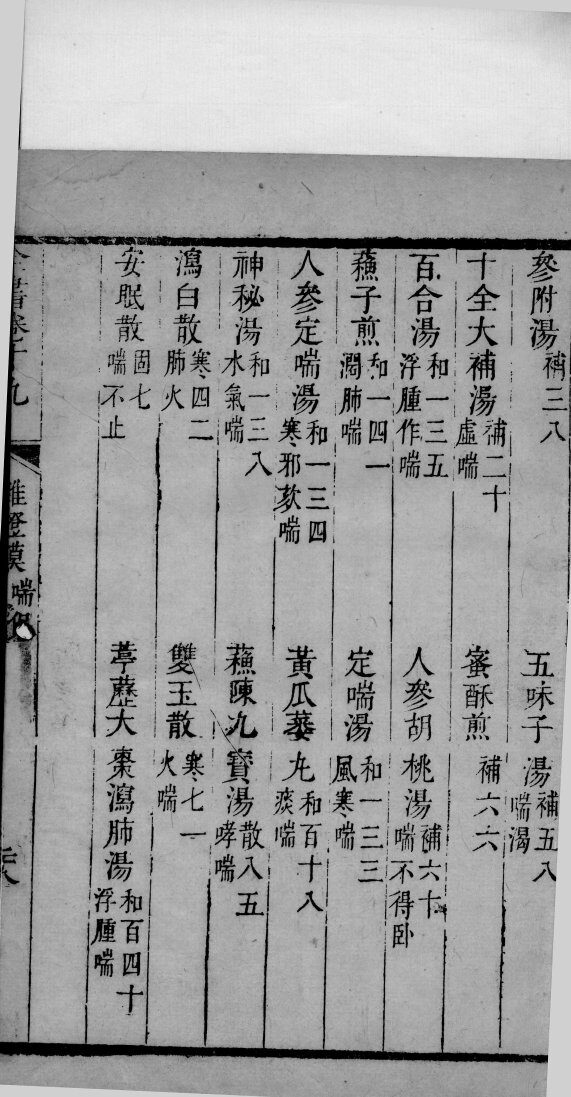 參附湯 補三八 五味子湯 補五八 喘渴
十全大補湯 補二十 虛喘 蜜酥煎 補六六
百合湯 和一三五 浮腫作喘 人參胡桃湯 補六十 喘不得卧
蘓子煎 和一四一 潤肺喘 定喘湯 和一三三 風寒喘
人參定喘湯 和一三四 寒邪欬喘 黃瓜蔞丸 和百十八 痰喘
神秘湯 和一三八 水氣喘 蘓陳九寶湯 散八五 哮喘
瀉白散 寒四二 肺火 雙玉散 寒七一 火喘
安眠散 固七 喘不止 葶藶大棗瀉肺湯 和百四十 浮腫喘
全書卷十九 雜證謨 喘促